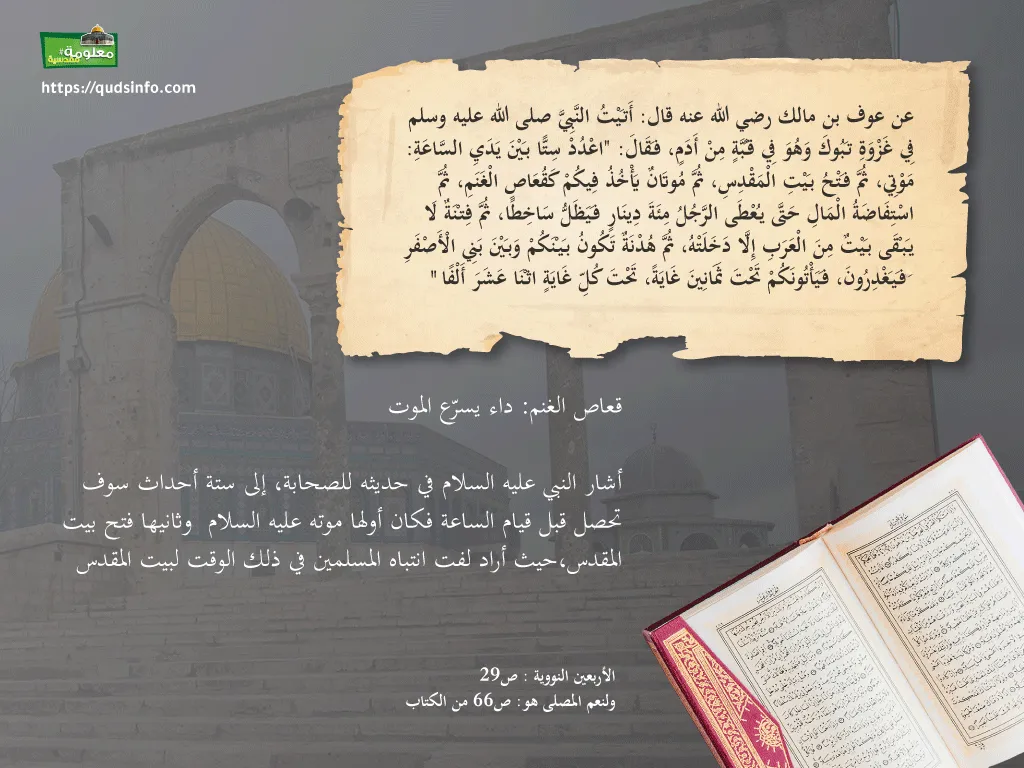 #معلومة
مقدسية
https://qudsinfo.com
عن عوف بن مالك رضي الله عنه قال: أَتَيْتُ النَّبِيَّ صلى الله عليه وسلم
فِي غَزْوَةِ تَبُوكَ وَهُوَ فِي قُبَّةٍ مِنْ أَدَمٍ، فَقَالَ: "اعْدُدْ سِتًّا بَيْنَ يَدَيِ السَّاعَةِ:
مَوْتِي، ثُمَّ فَتْحُ بَيْتِ الْمَقْدِسِ، ثُمَّ مُوتَانٌ يَأْخُذُ فِيكُمْ كَقُعَاصِ الْغَنَمِ، ثُمَّ
اسْتِفَاضَةُ الْمَالِ حَتَّى يُعْطَى الرَّجُلُ مِئَةَ دِينَارٍ فَيَظَلُّ سَاخِطًا، ثُمَّ فِتْنَةٌ لَا
يَبْقَى بَيْتٌ مِنَ الْعَرَبِ إِلَّا دَخَلَتْهُ، ثُمَّ هُدْنَةٌ تَكُونُ بَيْنَكُمْ وَبَيْنَ بَنِي الْأَصْفَرِ
فَيَغْدِرُونَ، فَيَأْتُونَكُمْ تَحْتَ ثَمَانِينَ غَايَةً، تَحْتَ كُلِّ غَايَةٍ اثْنَا عَشَرَ أَلْفًا "
قعاص الغنم: داء يسرّع الموت
أشار النبي عليه السلام في حديثه للصحابة، إلى ستة أحداث سوف
تحصل قبل قيام الساعة فكان أولها موته عليه السلام وثانيها فتح بيت
المقدس،حيث أراد لفت انتباه المسلمين في ذلك الوقت لبيت المقدس
الأربعين النووية : ص29
ولنعم المصلى هو: ص66 من الكتاب